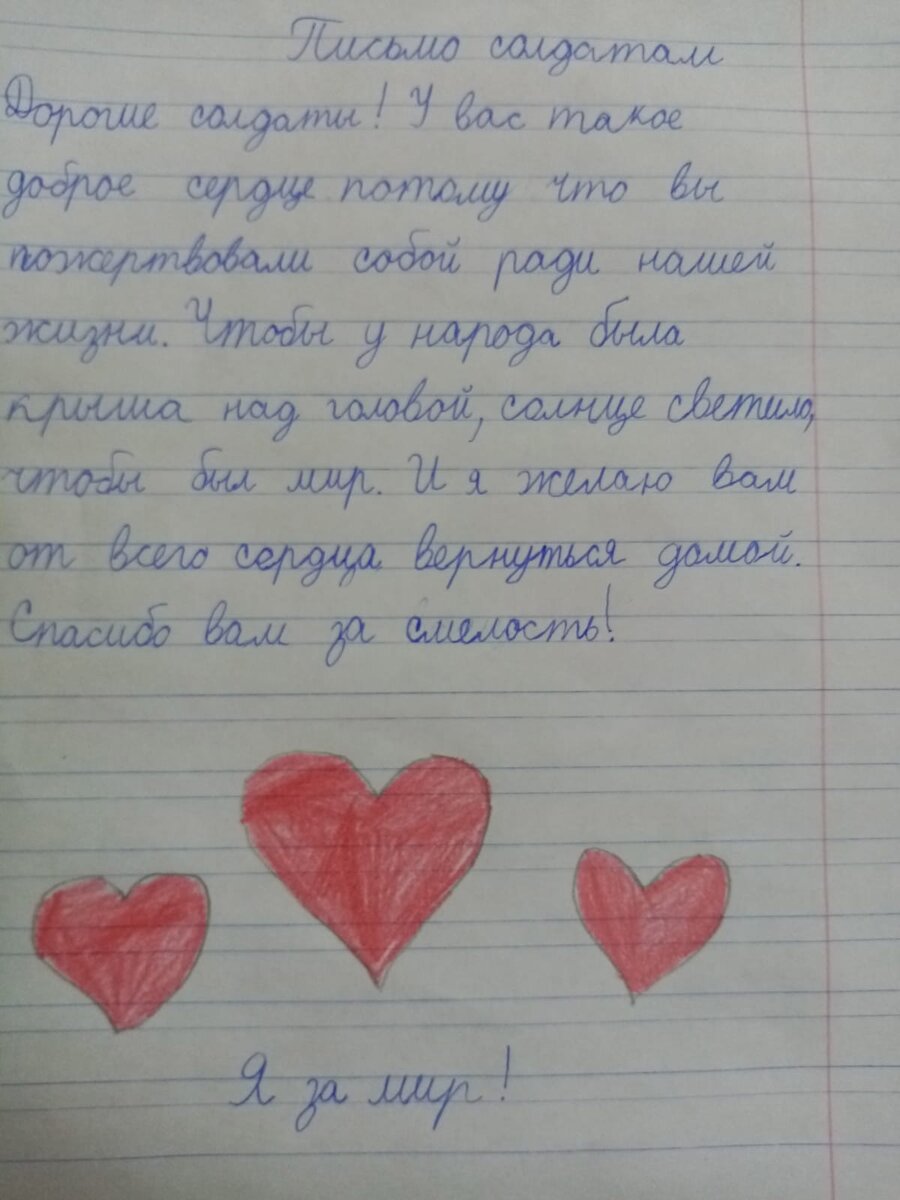 Письмо солдатам
Дорогие солдаты! У вас такое
доброе сердце потому что вы
пожертвовали собой ради нашей
жизни. Чтобы у народа была
крыша над головой, солнце светило,
чтобы был мир. И я желаю вам
от всего сердца вернуться домой.
Спасибо вам за смелость!
Я за мир!